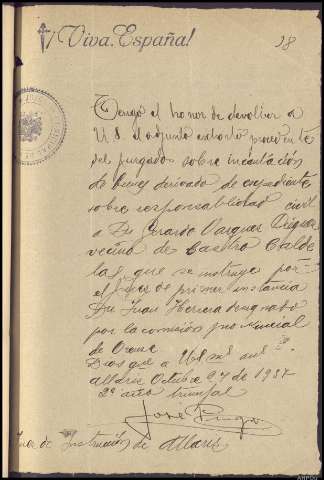 ¡Viva España!
18
Tengo el honor de devolver a
U.S. el adjunto exhorto procedente
del juzgado sobre incautación
de bienes derivado de expediente
sobre responsabilidad civil
a Dn Gerardo Vazquez
vecino de Castro Calde
las, que se instruye por
el Juez de primer instancia
Dn Juan Herrera designado
por la comisión provincial
de Orense
Dios gue a U.S. ms as.
Allariz Octubre 27 de 1937
2º año triunfal
José
Juez de Instrucción de Allariz